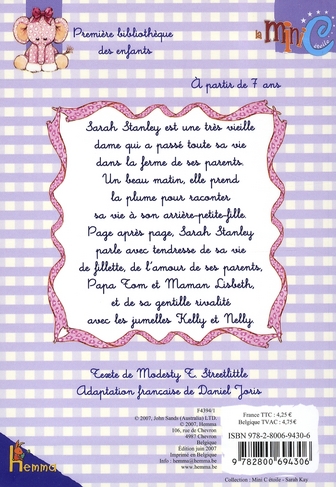 Première bibliothèque
des enfants
la
mini C
étoile
À partir de 7 ans
Sarah Stanley est une très vieille
dame qui a passé toute sa vie
dans la ferme de ses parents.
Un beau matin, elle prend
la plume pour raconter
sa vie à son arrière-petite-fille.
Page après page, Sarah Stanley
parle avec tendresse de sa vie
de fillette, de l'amour de ses parents,
Papa Tom et Maman Lisbeth,
et de sa gentille rivalité
avec les jumelles Kelly et Nelly.
Texte de Modesty C. Streetlittle
Adaptation francaise de Daniel Joris
F4394/1
© 2007, John Sands (Australia) LTD.
© 2007, Hemma
106, rue de Chevron
4987 Chevron
Belgique
Edition juin 2007
Imprimé en Belgique
Email : hemma@hemma.be
www.hemma.be
France TTC : 4,25 €
Belgique TVAC : 4,75 €
ISBN 978-2-8006-9430-6
9 782800 694306
Hemma
Collection : Mini C étoile - Sarah Kay